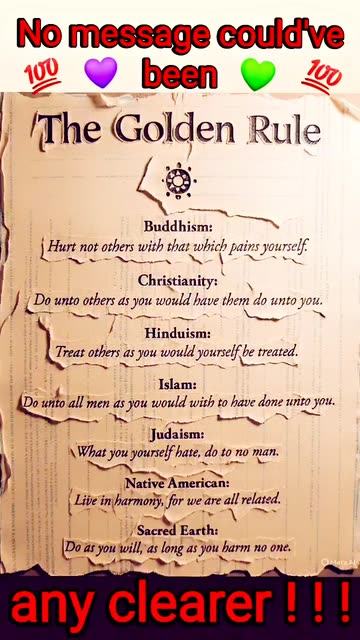 No message could've
💯 💜 been 💚 💯
The Golden Rule
Buddhism:
Hurt not others with that which pains yourself.
Christianity:
Do unto others as you would have them do unto you.
Hinduism:
Treat others as you would yourself be treated.
Islam:
Do unto all men as you would with to have done unto you.
Judaism:
What you yourself hate, do to no man.
Native American:
Live in harmony, for we are all related.
Sacred Earth:
Do as you will, as long as you harm no one.
any clearer ! ! !